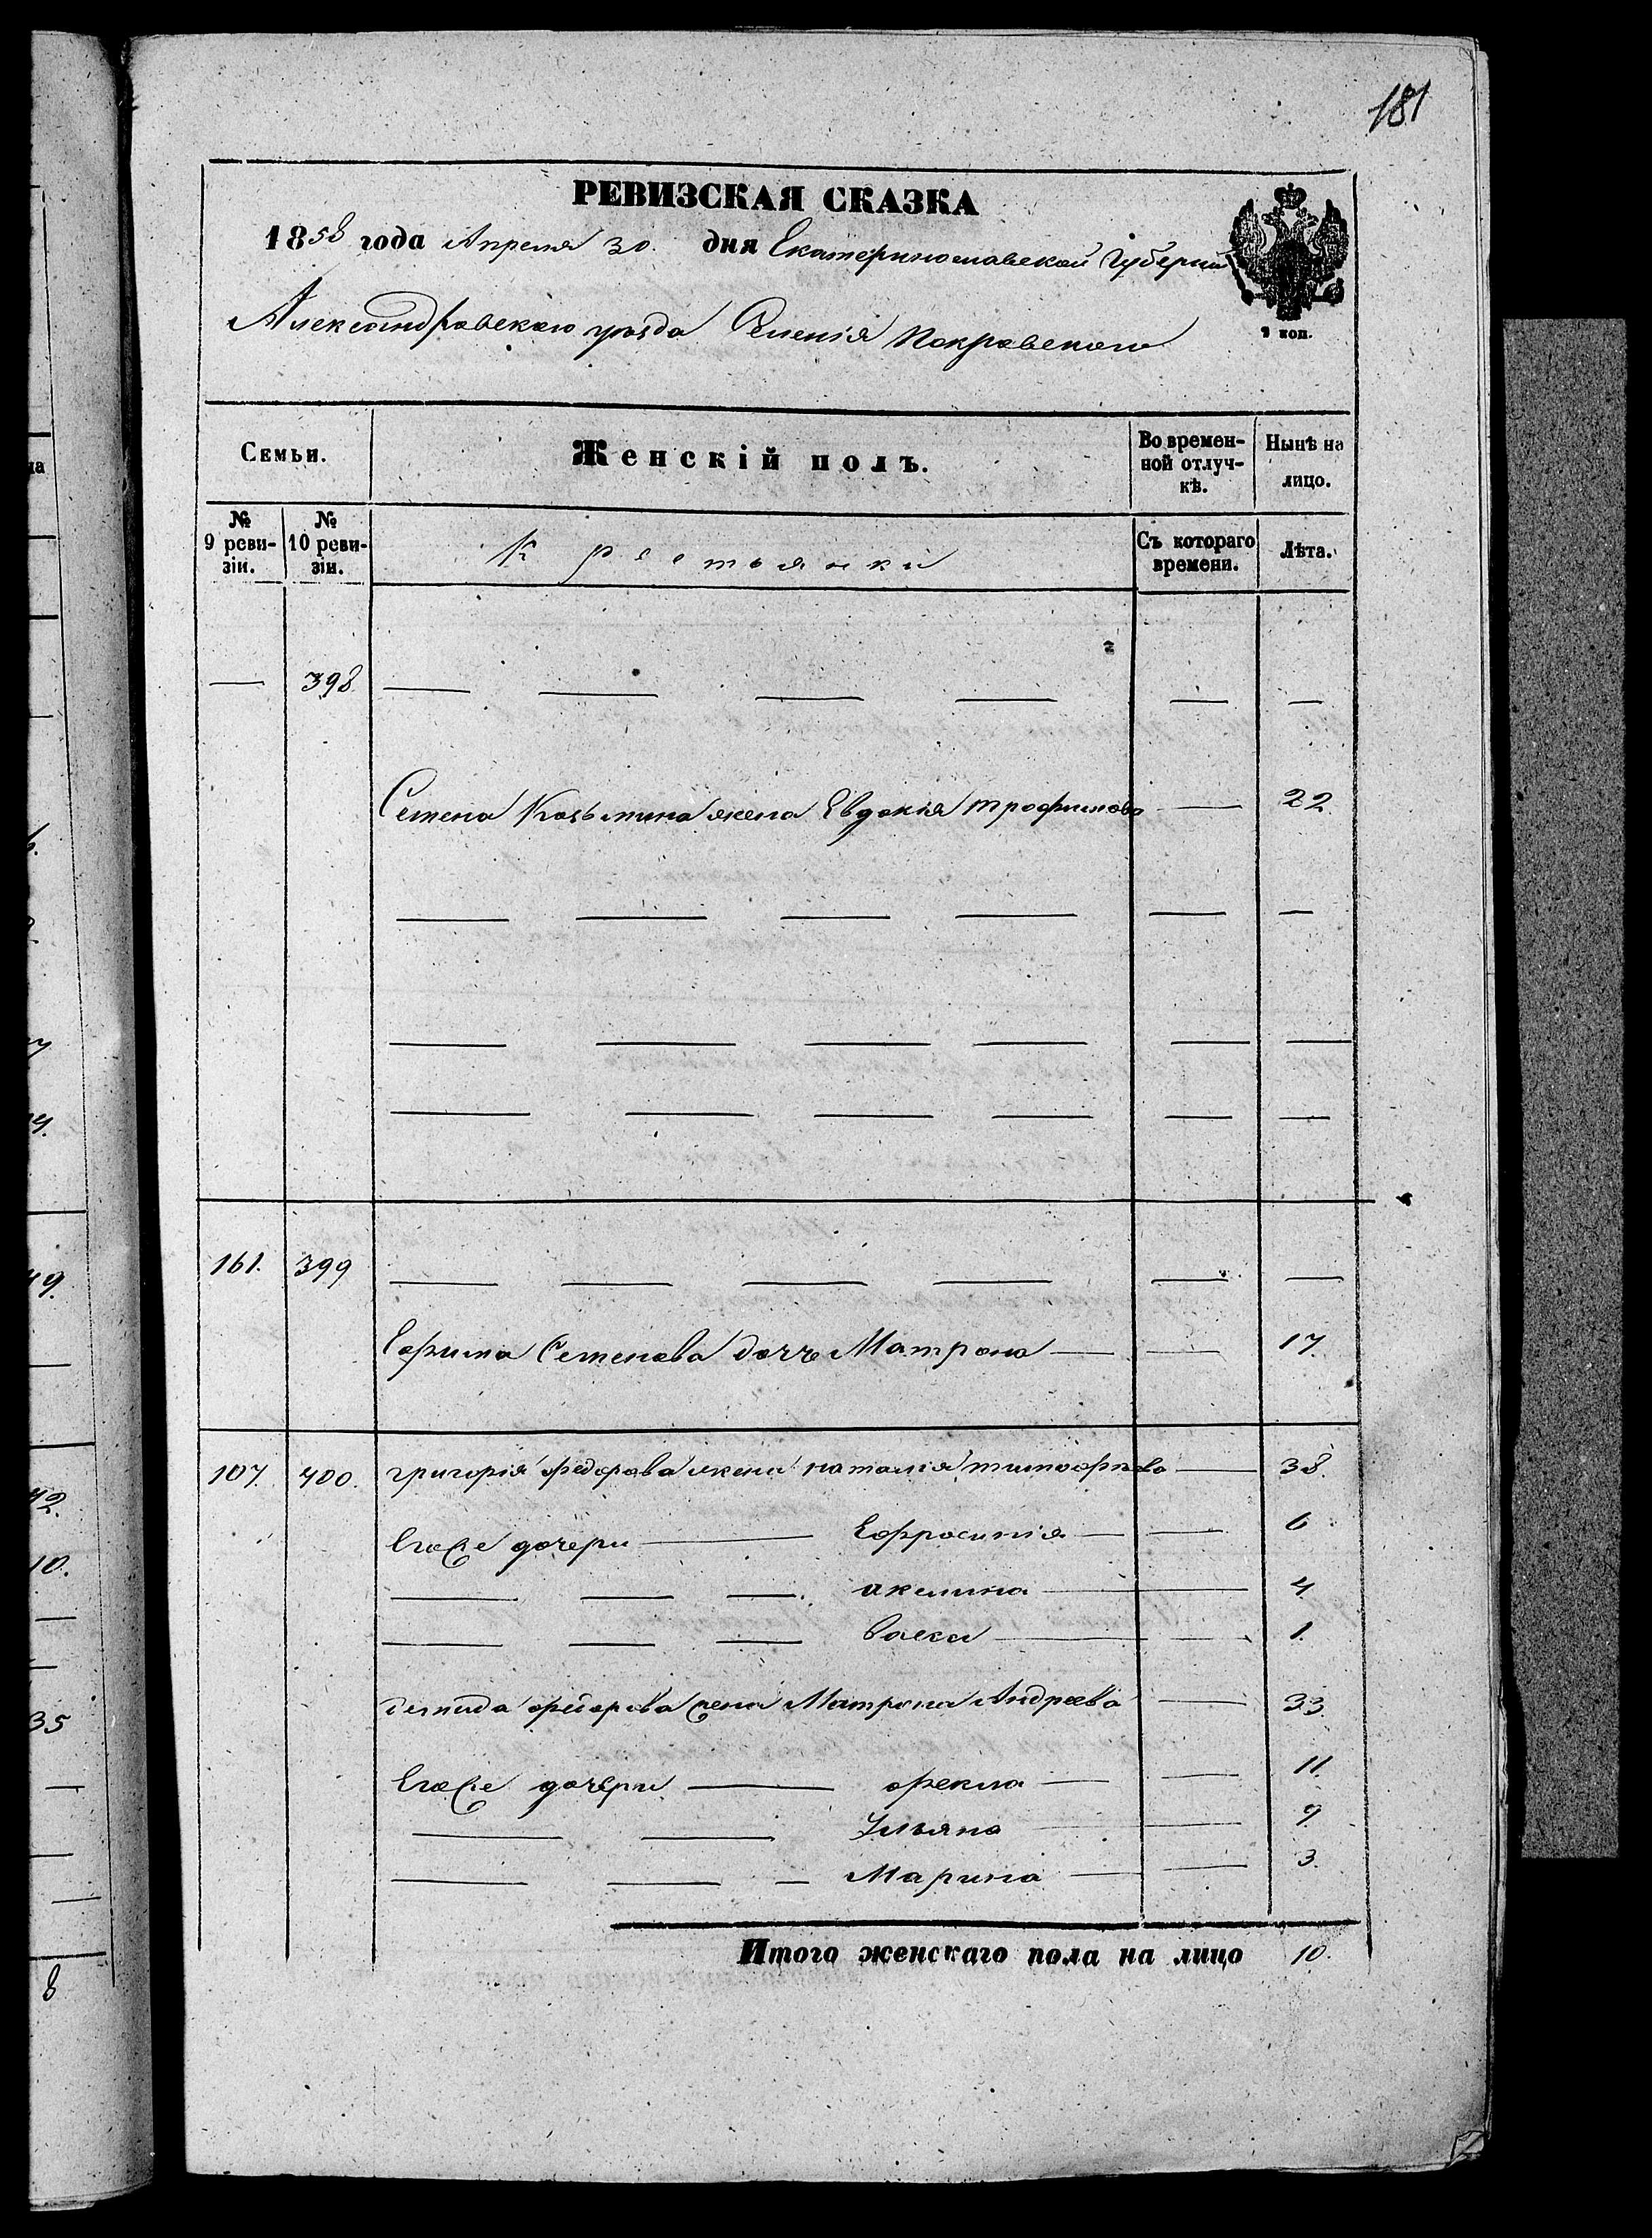 181
РЕВИЗСКАЯ СКАЗКА
1858 года Апреля 30. дня Екатеринославской Губернии
Александровского уѣзда Селенія Покровского
2 коп.
Семьи.
Женскій полъ.
Во времен-
ной отлуч-
кѣ.
Нынѣ на
лицо.
№
9 реви-
зіи.
№
10 реви-
зіи.
Крестьянки
Съ котораго
времени.
Лѣта.
— 398 — — — — — —
Семена Козьмина жена Евдокія Трофимова — 22.
— — — — — —
— — — — — —
— — — — — —
161. 399 — — — — — —
Ефима Семенова дочь Матрона — — 17.
107. 400. Григорія Федорова жена Наталія Тимофѣева — 38.
Егоже дочери — Ефросинія — — 6
— — — Акелина — 4
— — — Васса — — 1.
Демида Федорова жена Матрона Андреева — 33.
Егоже дочери — Фекла — — 11
— — Ульяна — — 9
— — — Марина — — 3.
Итого женскаго пола на лицо 10.
на
49.
42.
10.
35
8